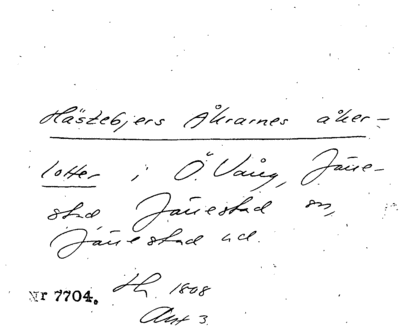 Hästebjers Åkrarnes åker-
lotter i Ö. Vång, Jäne-
stad Jänestad sn,
Jänestad hd.
Nr 7704. Hh 1808
Akt 3